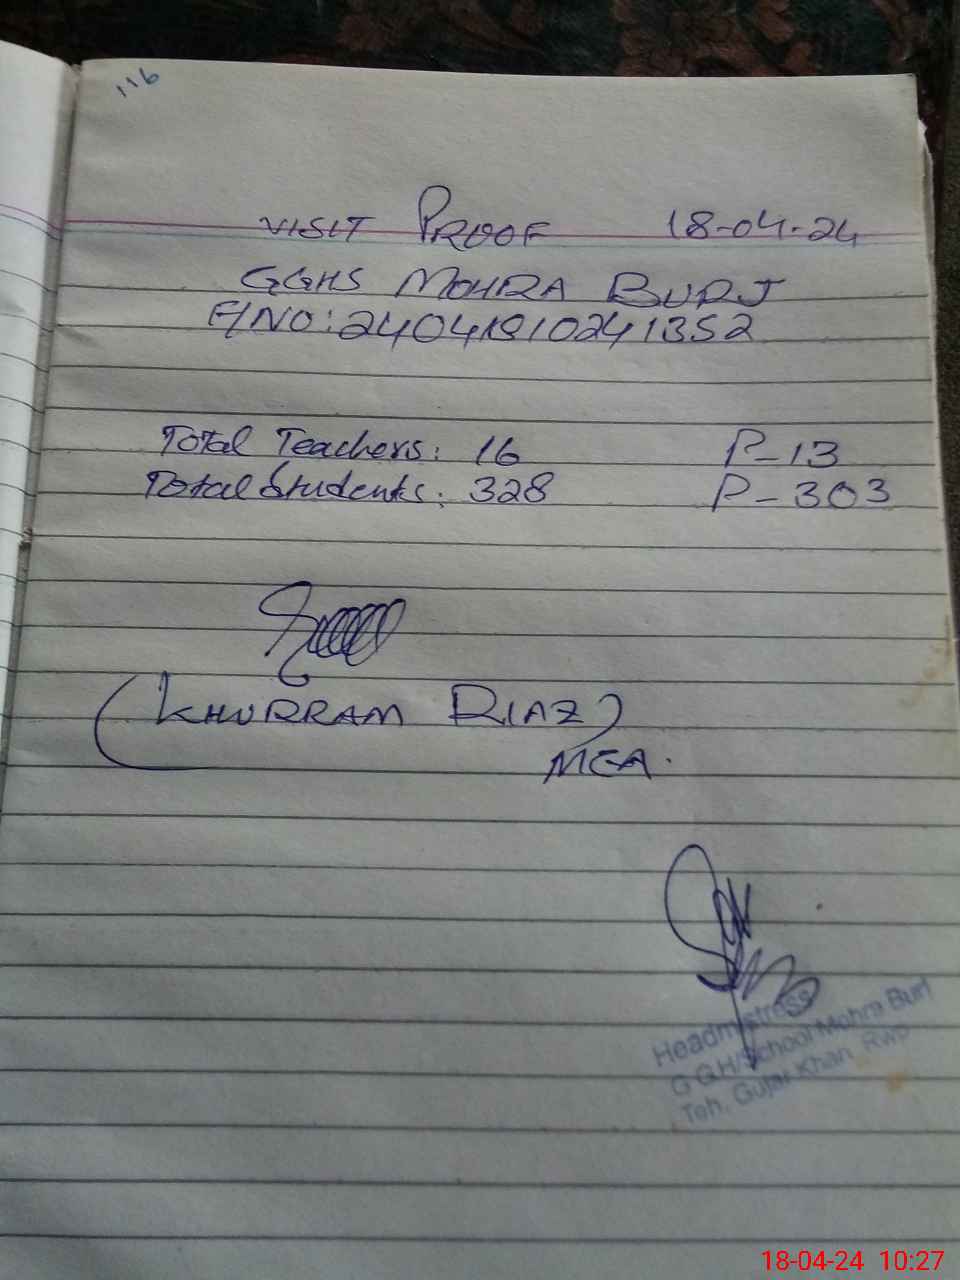 116
VISIT PROOF 18-04-24
GGHS MOHRA BURJ
F/NO: 24041810241352
Total Teachers: 16 P-13
Total Students: 328 P-303
(KHURRAM RIAZ)
MEA.
Headmistress
G G.H/School Mohra Burj
Teh. Gujar Khan Rwp
18-04-24 10:27